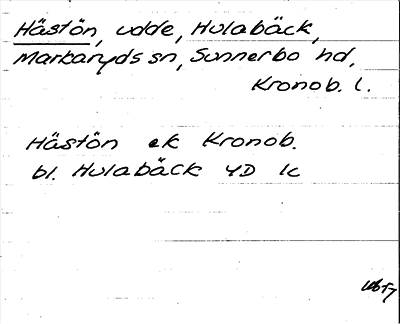 Hästön, udde, Hulabäck,
Markaryds sn, Sunnerbo hd,
Kronob. l.
Hästön ek Kronob.
bl. Hulabäck 4D 1c